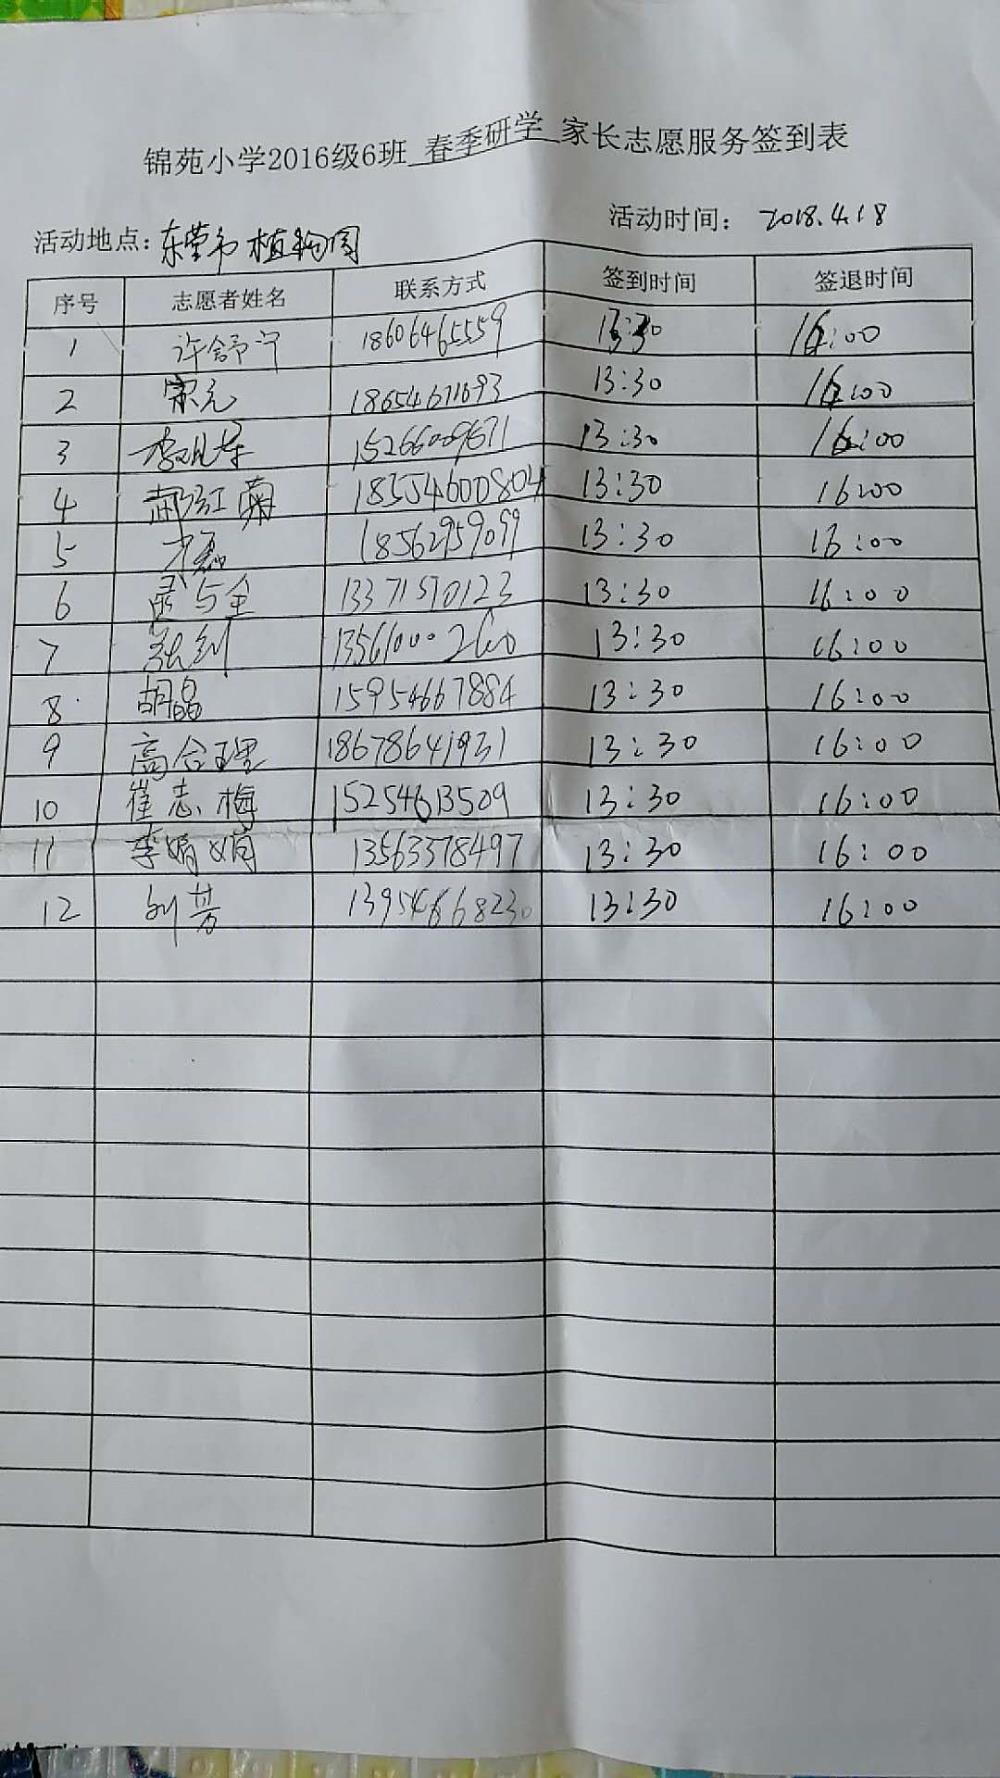 锦苑小学2016级6班 春季研学 家长志愿服务签到表
活动地点：东营市植物园 活动时间： 2018.4.18
序号 志愿者姓名 联系方式 签到时间 签退时间
1 许舒宁 18606465559 13:30 16:00
2 宋元 13:30 16:00
3 13:30 16:00
4 郝红菊 18554600804 13:30 16:00
5 18562959099 13:30 16:00
6 13371590123 13:30 16:00
7 张钊 13:30 16:00
8 胡晶 15954667884 13:30 16:00
9 高合理 18678641931 13:30 16:00
10 崔志梅 15254613509 13:30 16:00
11 李娟娟 13563378497 13:30 16:00
12 刘芳 13954668230 13:30 16:00